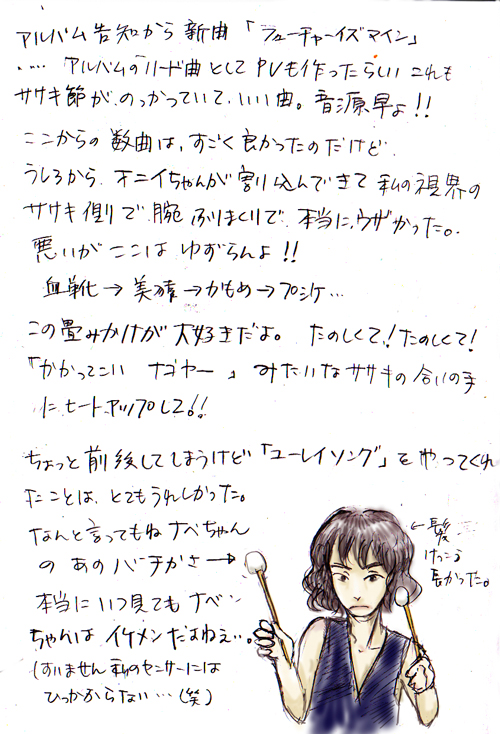 アルバム告知から新曲「フューチャーイズマイン」
‥‥ アルバムのリード曲としてPVも作ったらしい これも
ササキ節が、のっかっていて、いい曲。音源早よ!!
ここからの数曲は、すごく良かったのだけど
うしろから、オニイちゃんが割り込んできて私の視界の
ササキ側で腕ふりまくりで、本当に、ウザかった。
悪いがここはゆずらんよ!!
血戦化→美猿→かもめ→プシケ…
この畳みかけが大好きだよ。たのしくて!たのしくて!
「かかってこい ナゴヤー」みたいなササキの合いの手
にヒートアップして!!
ちょっと前後してしまうけど「ユーレイソング」をやってくれ
たことは、とてもうれしかった。
なんと言ってもねナベちゃん
の あの バチかさ→
本当にいつ見てもナベ
ちゃんは イケメンだよねえ…。
(すいません 私のセンサーには
ひっかからない…(笑)
←髪
けっこう
長かった。